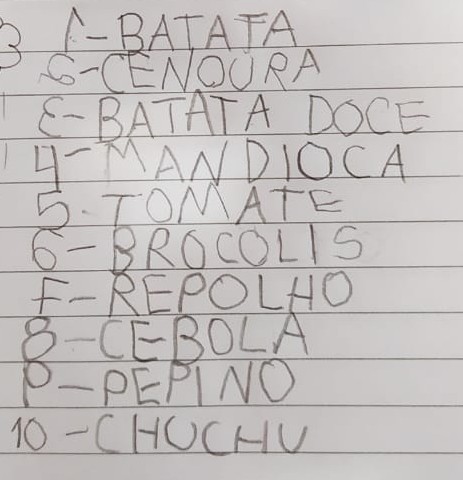 1-BATATA
2-CENOURA
3-BATATA DOCE
4-MANDIOCA
5-TOMATE
6-BROCOLIS
7-REPOLHO
8-CEBOLA
9-PEPINO
10-CHUCHU